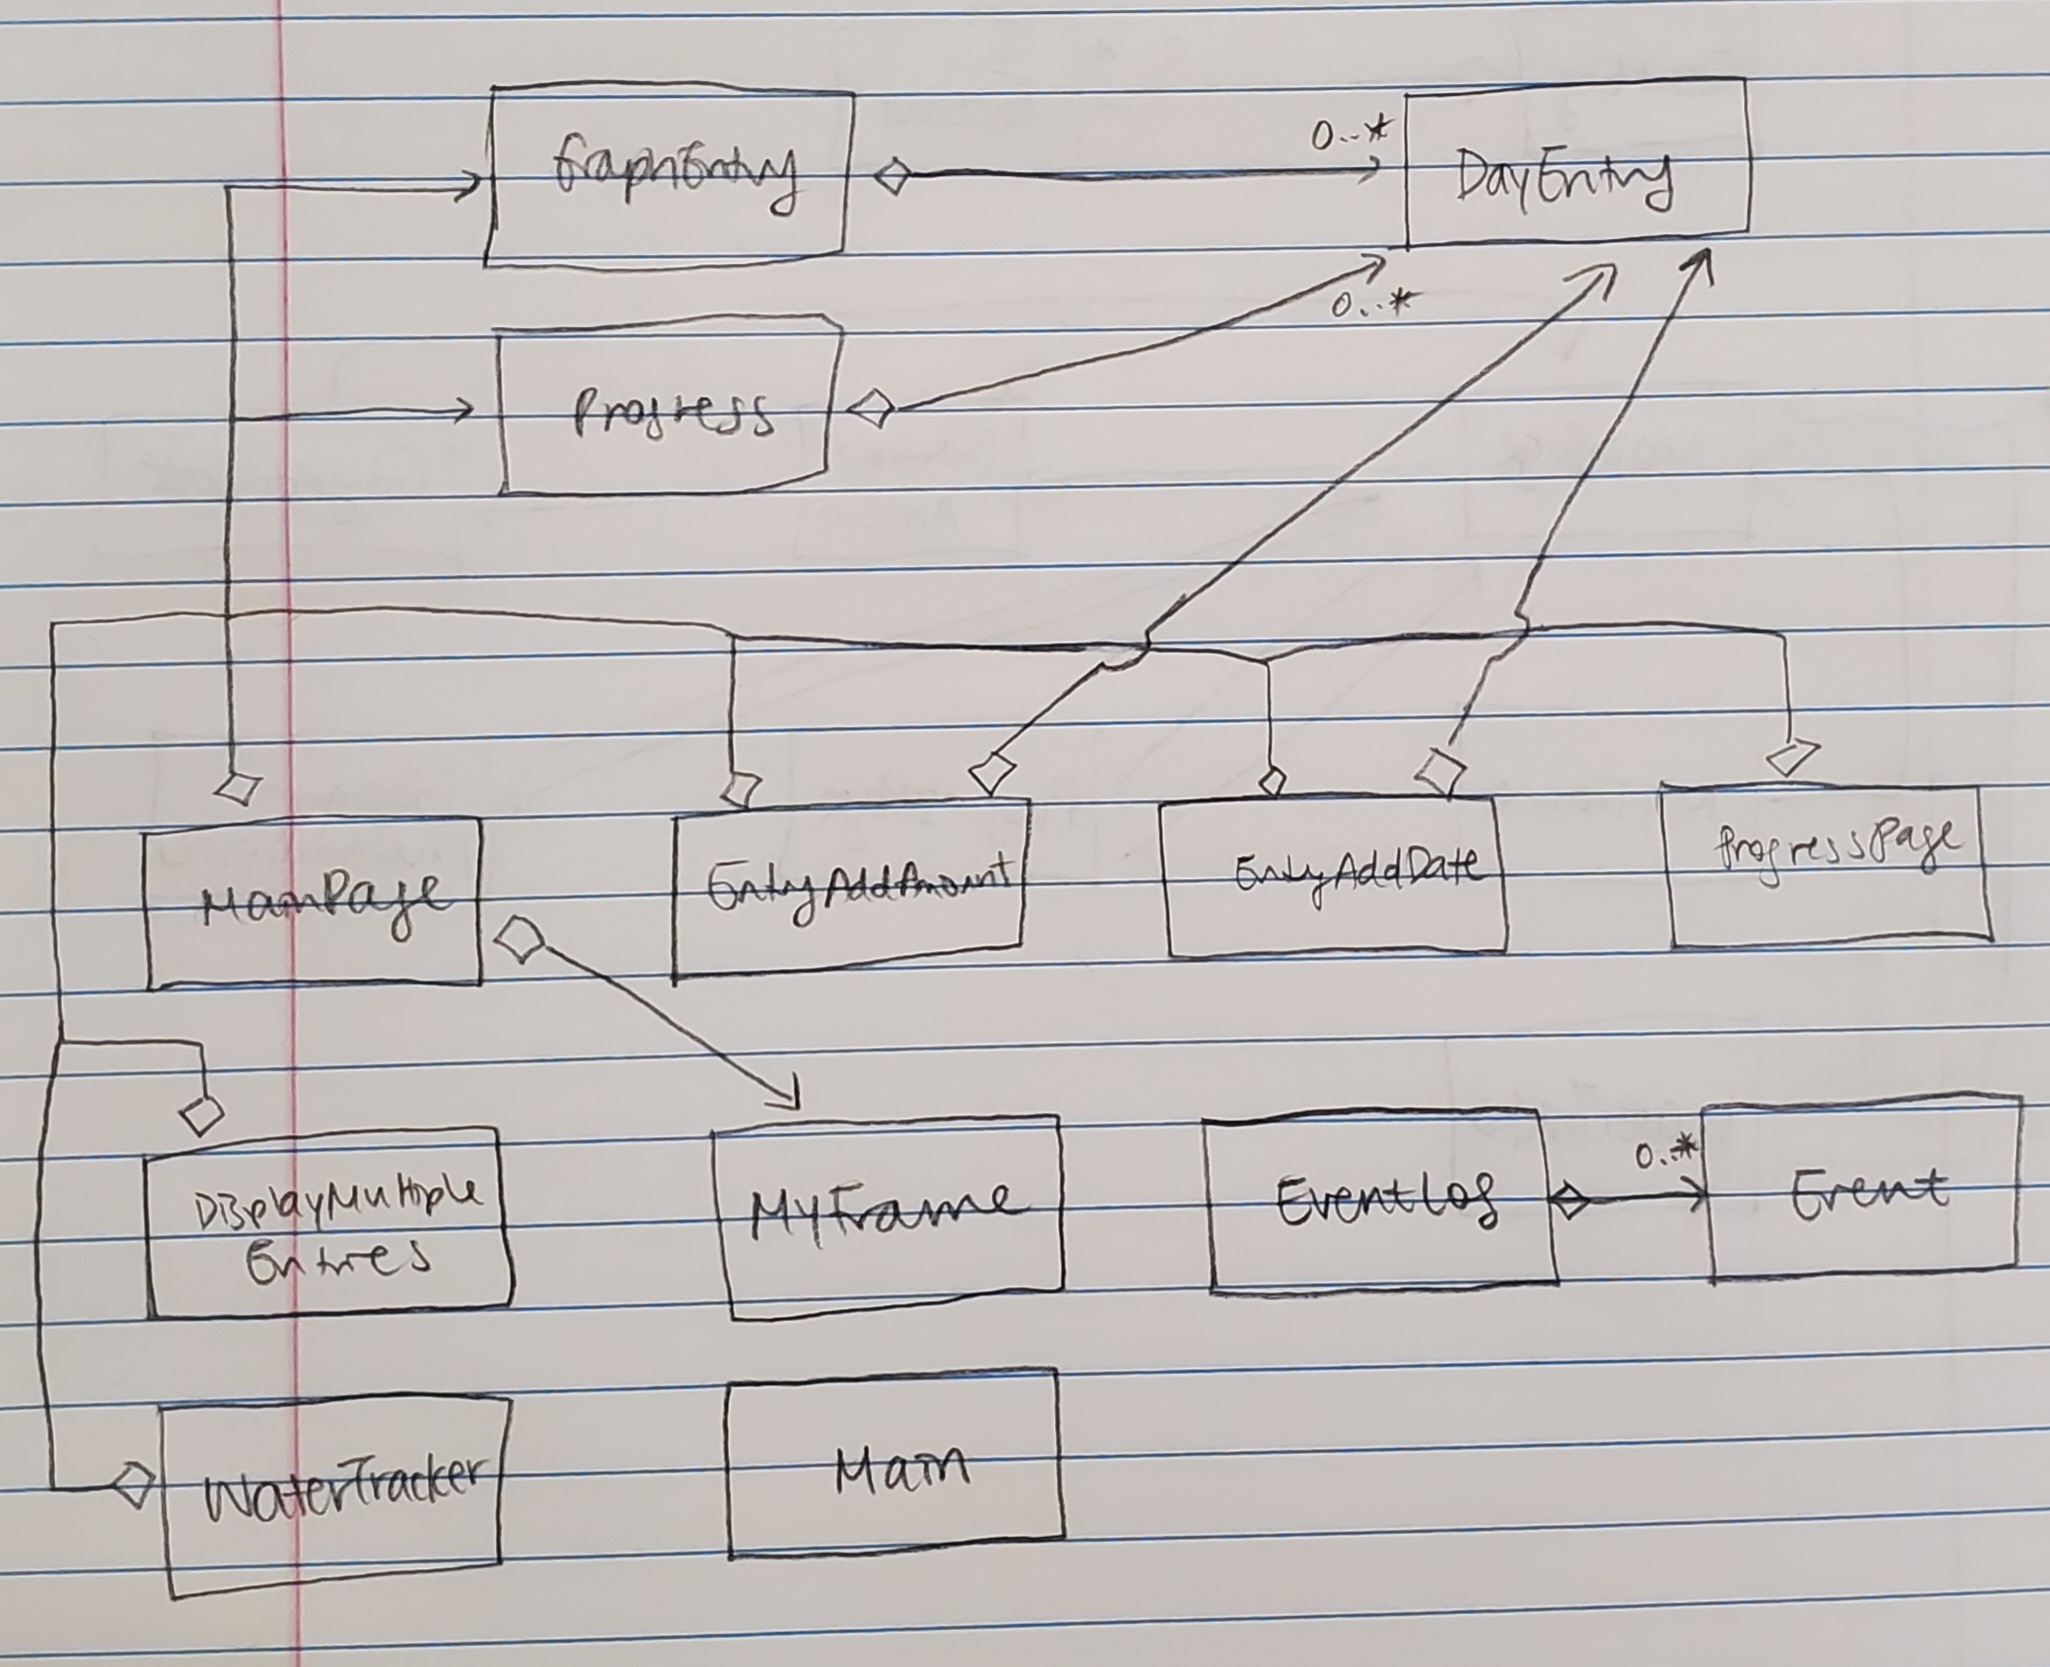 GraphEntry
0..*
DayEntry
0...*
Progress
MainPage
EntryAddAmount
EntryAddDate
ProgressPage
DisplayMultiple
Entries
MyFrame
EventLog
0..*
Event
WaterTracker
Main